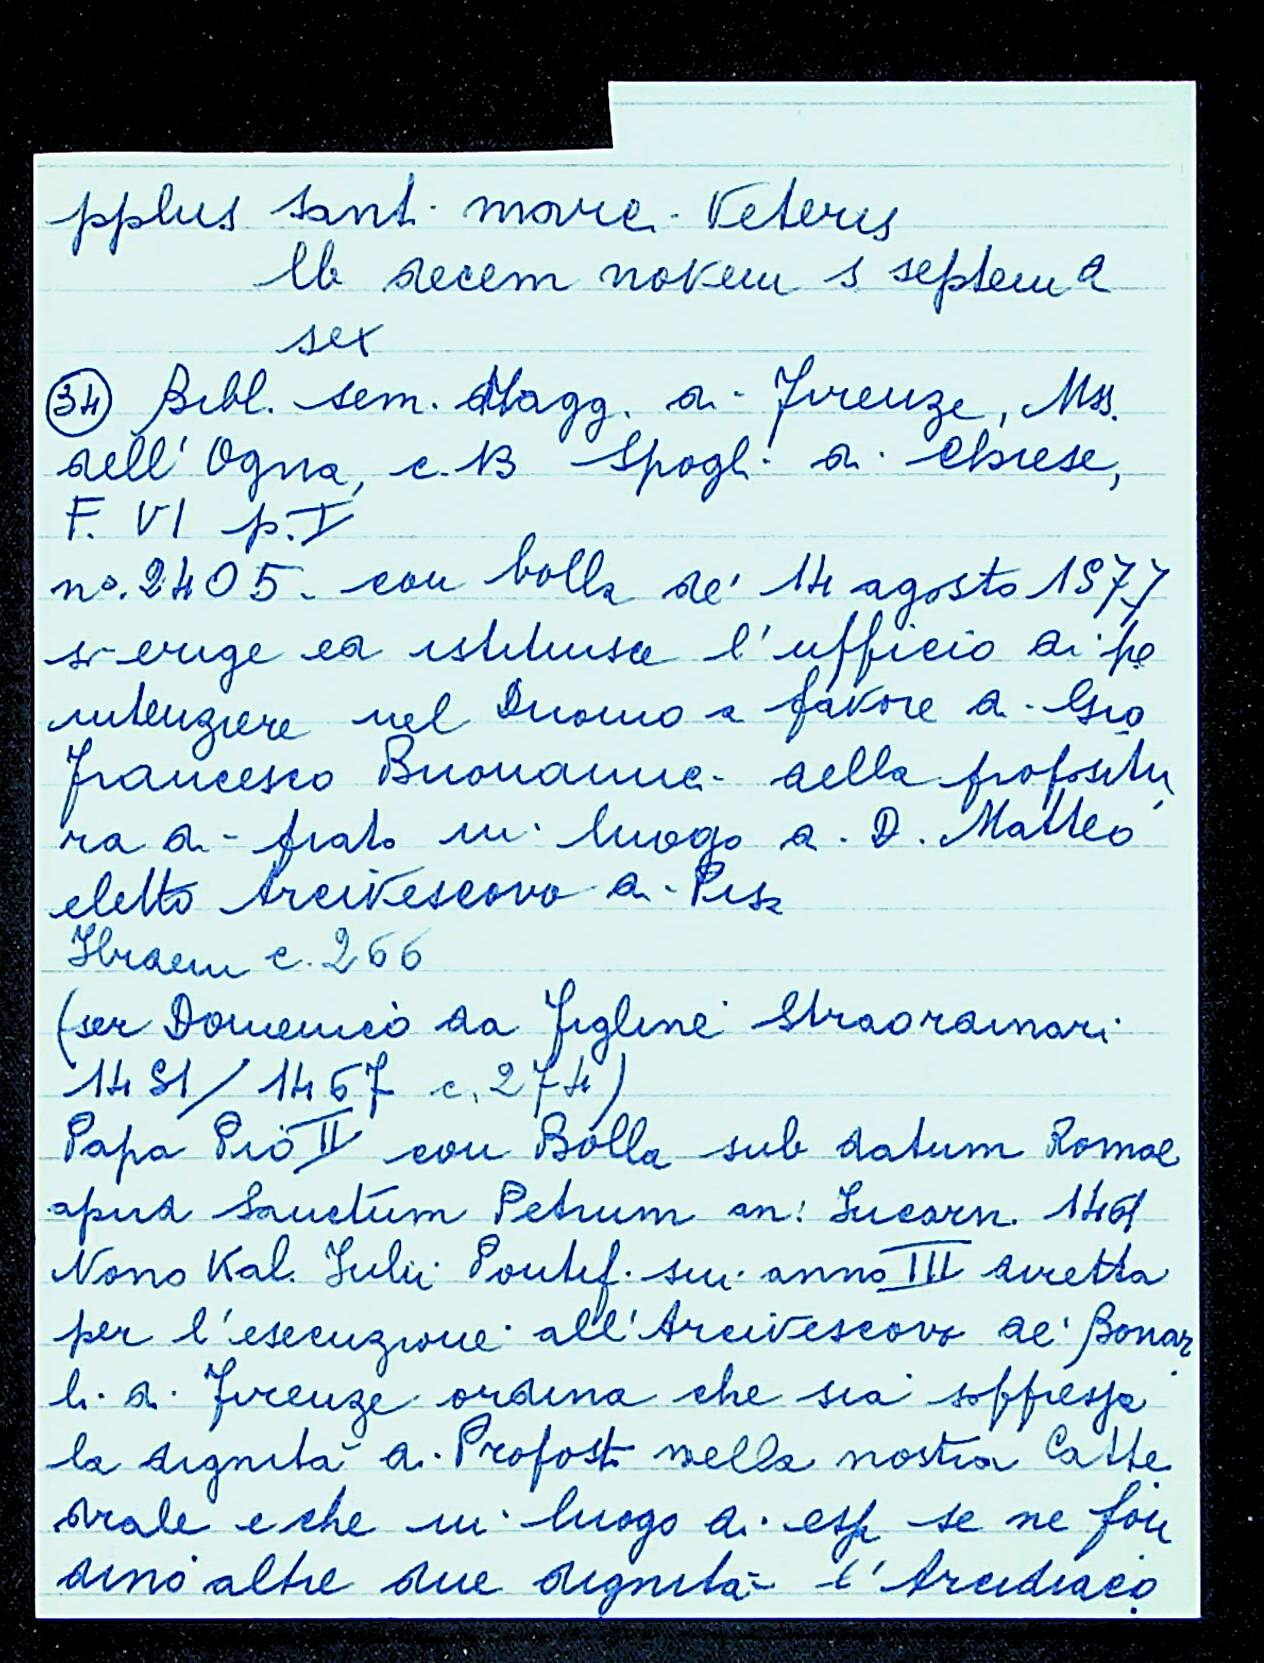 pplus sant. marie. Veteris
lb decem novem s septem d
sex
34 Bibl. sem. Magg. di Firenze, Mss.
dell'Ogna, c. 13 Spogli di Chiese,
F. VI p. I
no. 2405. con bolla de' 14 agosto 1577
si erige ed istituisce l'ufficio di pe
nitenziere nel Duomo a favore di Gio
Francesco Buonamici della propositu
ra di Prato in luogo di D. Matteo
eletto Arcivescovo di Pisa
Ibraem c. 266
(ser Domenico da Figline Straordinari
1451/1467 c. 274)
Papa Pio II con Bolla sub datum Romae
apud Sanctum Petrum an: Incarn. 1461
Nono Kal. Julii Pontif. sui anno III diretta
per l'esecuzione all'Arcivescovo de' Bonar
li di Firenze ordina che sia soppressa
la dignità di Propost nella nostra Catte
drale e che in luogo di esse se ne fon
dino altre due dignità l'Arcidiaco